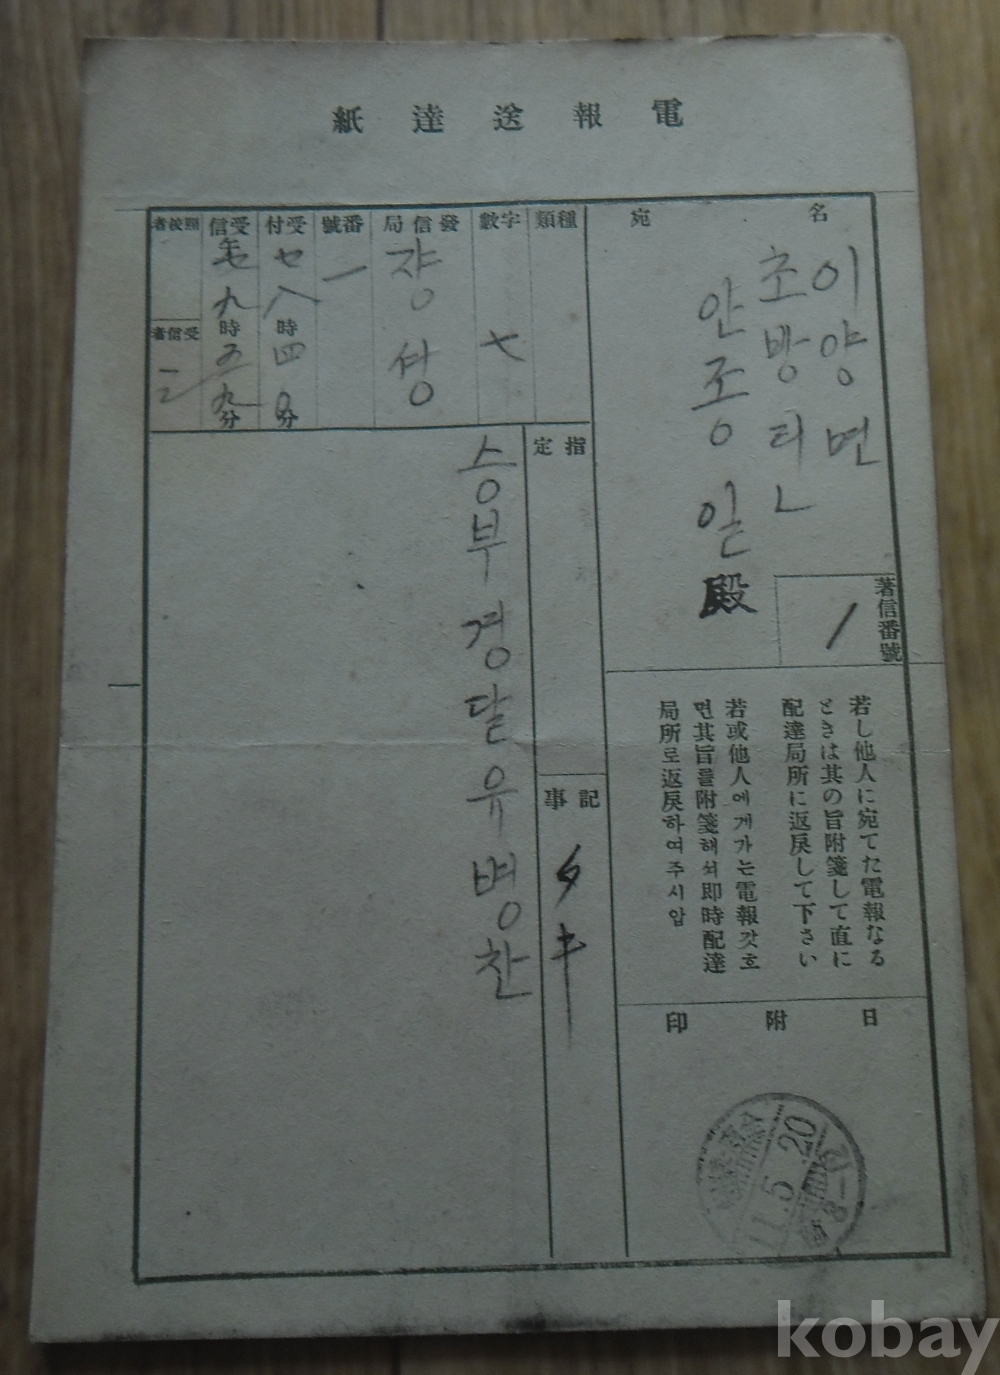 電報送達紙
名宛
이양면
초방티ㄴ
안종일殿
著信番號
1
若し他人に宛てた電報なる
ときは其の旨附箋して直に
配達局所に返戾して下さい
若或他人에게가는電報갓호
면其旨를附箋해셔即時配達
局所로返戾하여주시압
日附印
11.5.20
種類
字數
七
發信局
쟝셩
番號
一
受付
七
八時四〇分
受信
九時五九分
照校者
受信者
指定
記事
タキ
승부경달유병찬
kobay